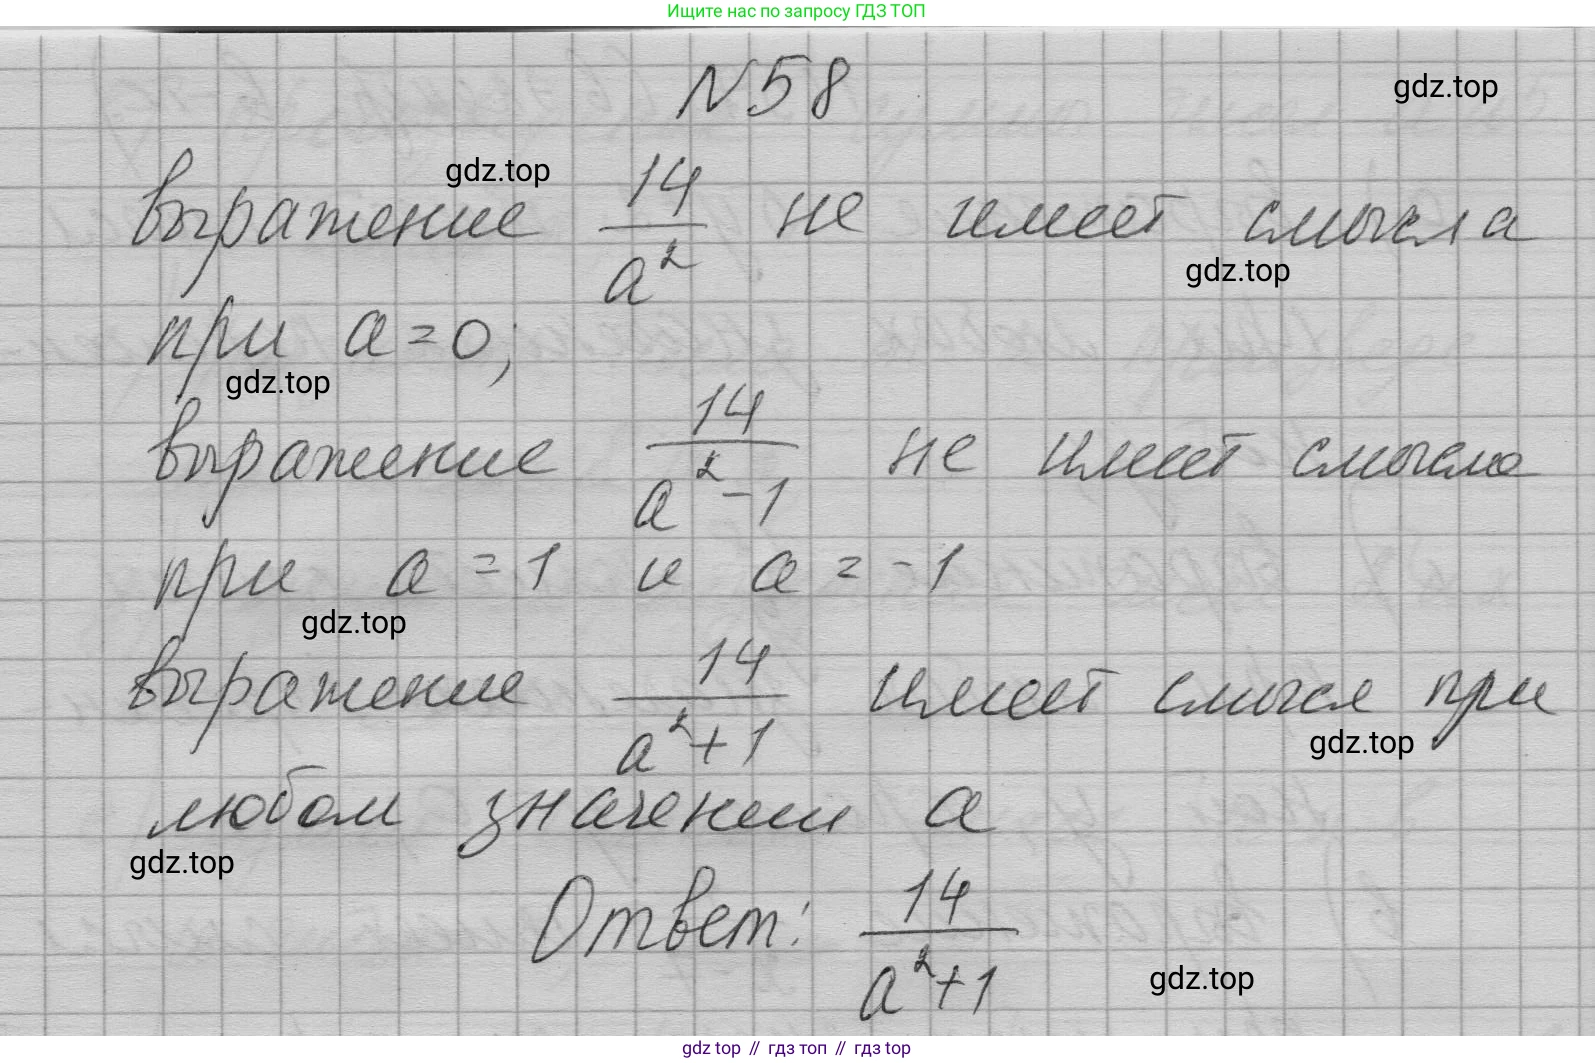 Ищите нас по запросу ГДЗ ТОП
N58
gdz.top
gdz.top
выражение 14/a² не имеет смысла
gdz.top
при a=0;
gdz.top
выражение 14/(a²-1) не имеет смысла
при a=1 и a=-1
gdz.top
выражение 14/(a²+1) имеет смысл при
gdz.top
любом значении a
gdz.top
Ответ: 14/(a²+1)
gdz.top
gdz top // гдз топ // gdz top